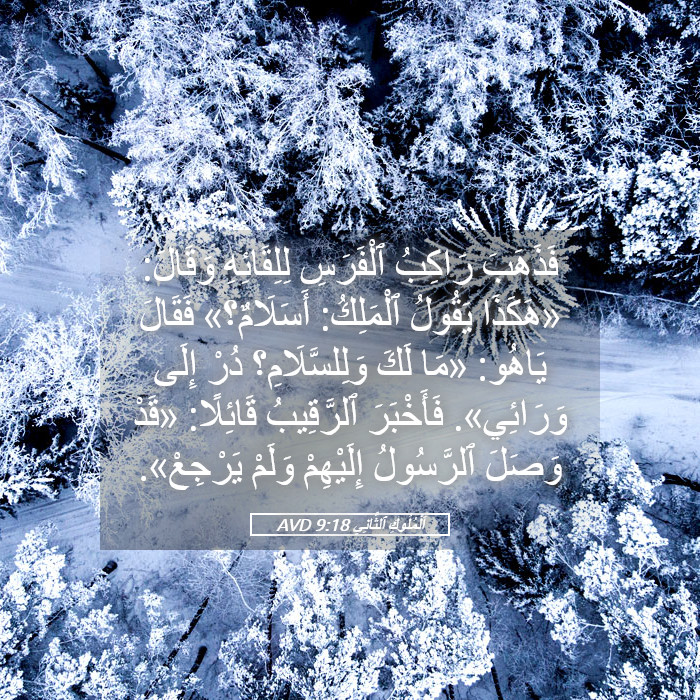 فَذَهَبَ رَاكِبُ ٱلْفَرَسِ لِلِقَائِهِ وَقَالَ:
«هَكَذَا يَقُولُ ٱلْمَلِكُ: أَسَلَامٌ؟» فَقَالَ
يَاهُو: «مَا لَكَ وَلِلسَّلَامِ؟ دُرْ إِلَى
وَرَائِي». فَأَخْبَرَ ٱلرَّقِيبُ قَائِلًا: «قَدْ
وَصَلَ ٱلرَّسُولُ إِلَيْهِمْ وَلَمْ يَرْجِعْ».
اَلْمُلُوكِ ٱلثَّانِي 9:18 AVD